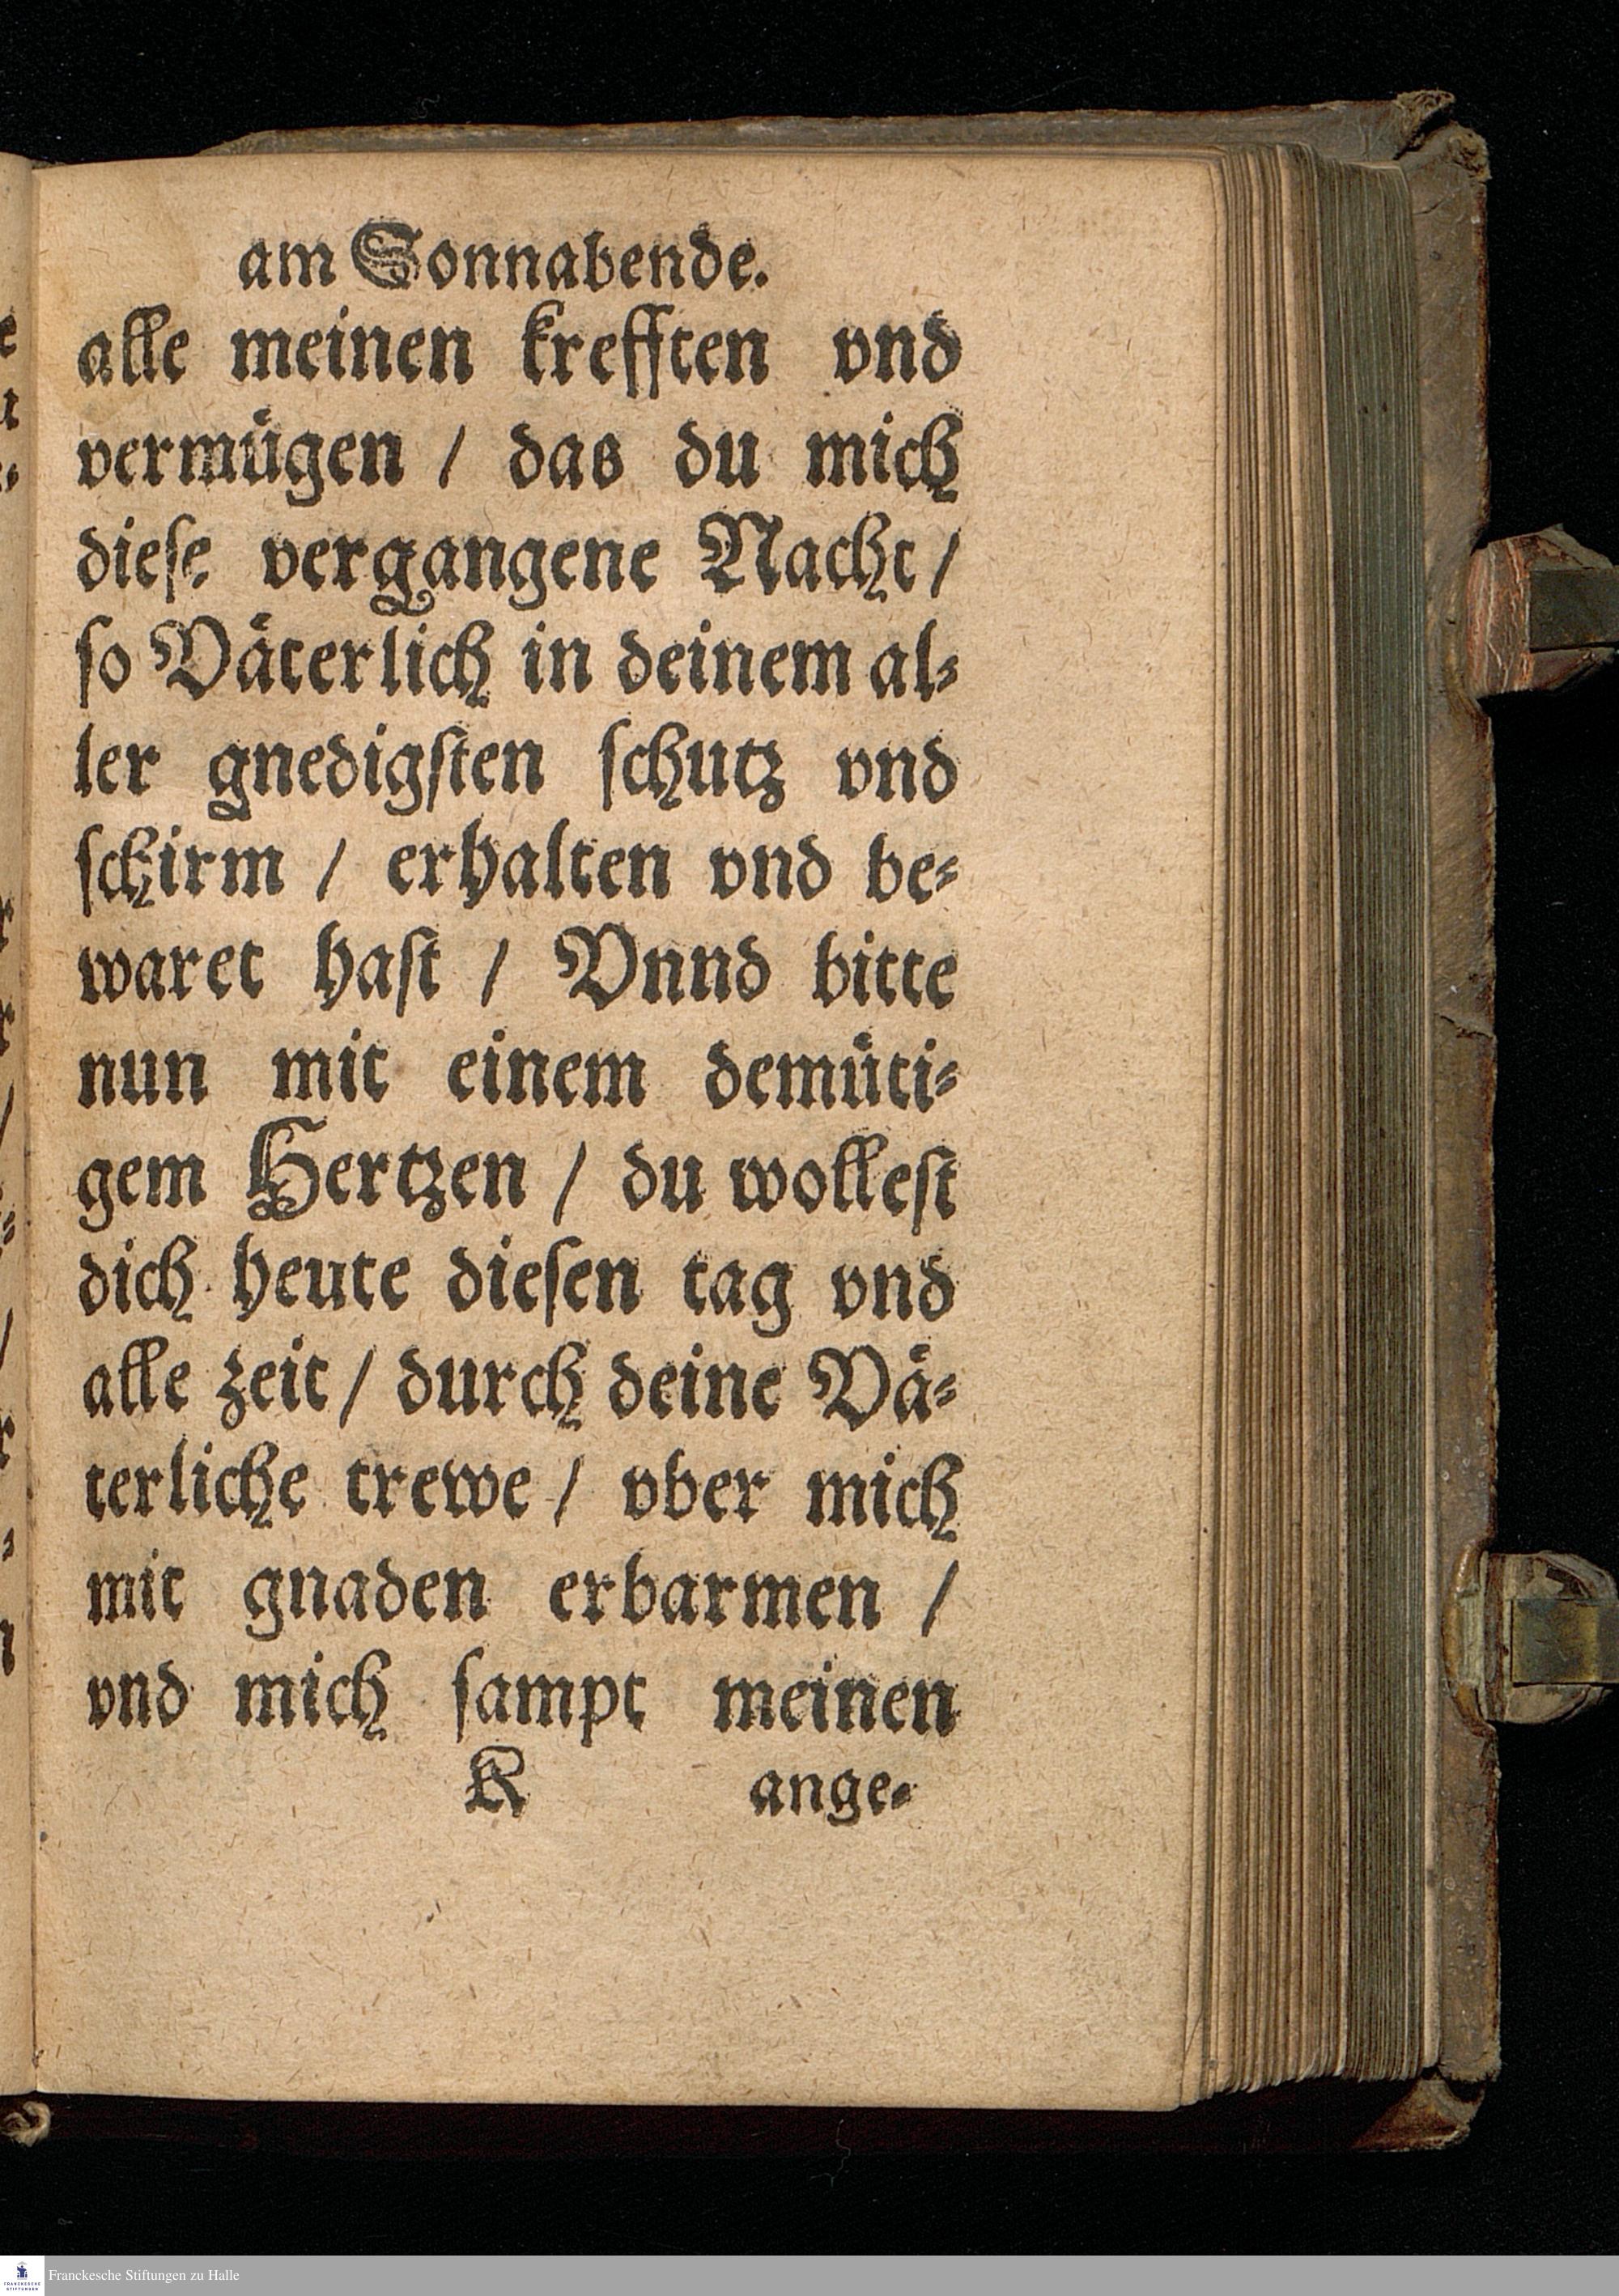 am Sonnabende.
alle meinen krefften vnd
vermügen / das du mich
diese vergangene Nacht /
so Väterlich in deinem al⸗
ler gnedigsten schutz vnd
schirm / erhalten vnd be⸗
waret hast / Vnnd bitte
nun mit einem demüti⸗
gem Hertzen / du wollest
dich heute diesen tag vnd
alle zeit / durch deine Vä⸗
terliche trewe / vber mich
mit gnaden erbarmen /
vnd mich sampt meinen
K ange⸗
Franckesche Stiftungen zu Halle